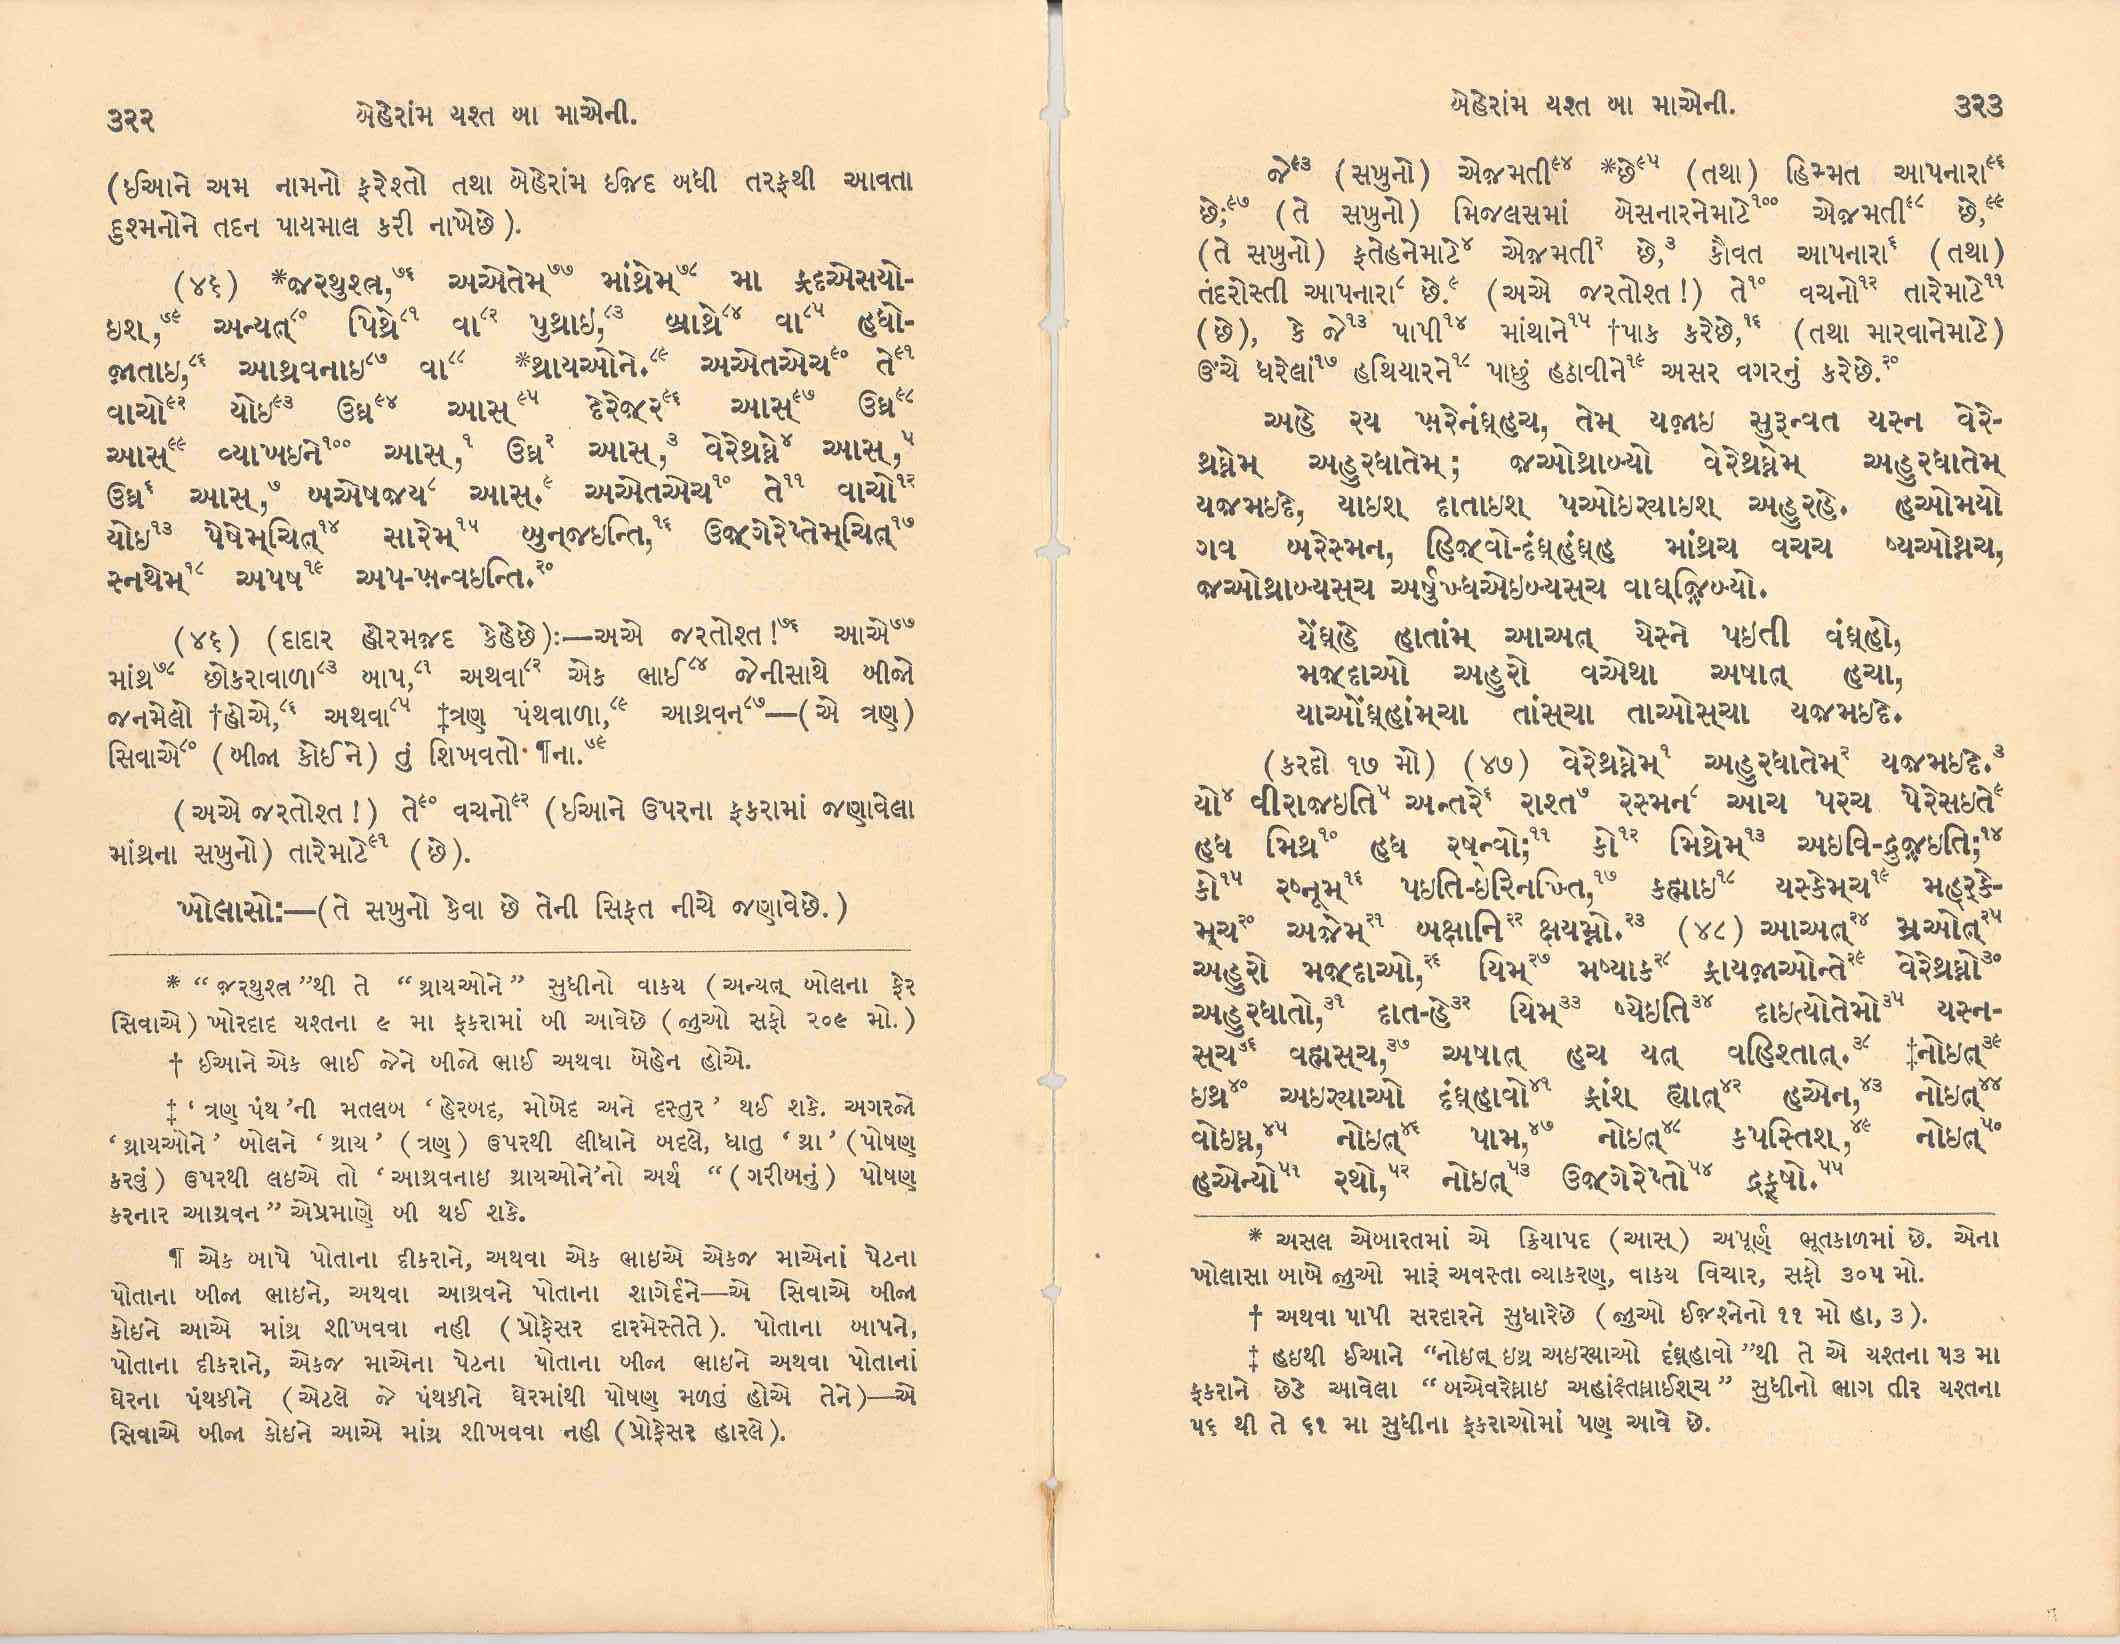 ૩૨૨ બેહેરાંમ યશ્ત બા માએની.
(ઈઆને અમ નામનો ફરેશ્તો તથા બેહેરાંમ ઈજદ બધી તરફથી આવતા
દુશ્મનોને તદન પાયમાલ કરી નાખેછે).
(૪૬) *જ઼રથુશ્ત્ર,૭૬ અએતેમ્૭૭ માંથ્રેમ્૭૮ મા ફ્રદએસયો-
ઇશ,૭૯ અન્યત્૮૦ પિથ્રે૮૧ વા૮૨ પુથ્રાઇ,૮૩ બ્રાથ્રે૮૪ વા૮૫ હધો-
જ઼ાતાઇ,૮૬ આથ્રવનાઇ૮૭ વા૮૮ *થ્રાયઓને.૮૯ અએતએચ૯૦ તે૯૧
વાચો૯૨ યોઇ૯૩ ઉઘ્ર૯૪ આસ્૯૫ દેરેજ઼્ર૯૬ આસ્૯૭ ઉઘ્ર૯૮
આસ્૯૯ વ્યાખઇને૧૦૦ આસ્,૧ ઉઘ્ર૨ આસ્,૩ વેરેથ્રઘ્ને૪ આસ્,૫
ઉઘ્ર૬ આસ્,૭ બએષજ઼ય૮ આસ્.૯ અએતએચ૧૦ તે૧૧ વાચો૧૨
યોઇ૧૩ પેષેમ્ચિત્૧૪ સારેમ્૧૫ બુન્જઇન્તિ,૧૬ ઉજ઼્ગેરેપ્તેમ્ચિત્૧૭
સ્નથેમ્૧૮ અપષ૧૯ અપ-ખ઼ન્વઇન્તિ.૨૦
(૪૬) (દાદાર હોરમજ઼દ કેહેછે):—અએ જરતોશ્ત!૭૬ આએ૭૭
માંથ્ર૭૮ છોકરાવાળા૮૩ બાપ,૮૧ અથવા૮૨ એક ભાઈ૮૪ જેનીસાથે બીજો
જનમેલો †હોએ,૮૬ અથવા૮૫ ‡ત્રણ પંથવાળા,૮૯ આથ્રવન૮૭—(એ ત્રણ)
સિવાએ૮૦ (બીજા કોઈને) તું શિખવતો ¶ના.૭૯
(અએ જરતોશ્ત!) તે૯૦ વચનો૯૨ (ઈઆને ઉપરના ફકરામાં જણાવેલા
માંથ્રના સખુનો) તારેમાટે૯૧ (છે).
ખોલાસો:—(તે સખુનો કેવા છે તેની સિફત નીચે જણાવેછે.)
* “જ઼રથુશ્ત્ર”થી તે “થ્રાયઓને” સુધીનો વાકય (અન્યત્ બોલના ફેર
સિવાએ) ખોરદાદ યશ્તના ૯ મા ફકરામાં બી આવેછે (જુઓ સફો ૨૦૯ મો.)
† ઈઆને એક ભાઈ જેને બીજો ભાઈ અથવા બેહેન હોએ.
‡ ‘ત્રણ પંથ’ની મતલબ ‘હેરબદ, મોબેદ અને દસ્તુર’ થઈ શકે. અગરજો
‘થ્રાયઓને’ બોલને ‘થ્રાય’ (ત્રણ) ઉપરથી લીધાને બદલે, ધાતુ ‘થ્રા’ (પોષણ
કરવું) ઉપરથી લઇએ તો ‘આથ્રવનાઇ થ્રાયઓને’નો અર્થ “(ગરીબનું) પોષણ
કરનાર આથ્રવન” એપ્રમાણે બી થઈ શકે.
¶ એક બાપે પોતાના દીકરાને, અથવા એક ભાઇએ એકજ માએનાં પેટના
પોતાના બીજા ભાઇને, અથવા આથ્રવને પોતાના શાગેર્દને—એ સિવાએ બીજા
કોઇને આએ માંથ્ર શીખવવા નહી (પ્રોફેસર દારમેસ્તેતે). પોતાના બાપને,
પોતાના દીકરાને, એકજ માએના પેટના પોતાના બીજા ભાઇને અથવા પોતાનાં
ઘેરના પંથકીને (એટલે જે પંથકીને ઘેરમાંથી પોષણ મળતું હોએ તેને)—એ
સિવાએ બીજા કોઇને આએ માંથ્ર શીખવવા નહી (પ્રોફેસર હારલે).
બેહેરાંમ યશ્ત બા માએની. ૩૨૩
જે૯૩ (સખુનો) એજ઼મતી૯૪ *છે૯૫ (તથા) હિમ્મત આપનારા૯૬
છે;૯૭ (તે સખુનો) મિજલસમાં બેસનારનેમાટે૧૦૦ એજ઼મતી૯૮ છે,૯૯
(તે સખુનો) ફતેહનેમાટે૪ એજ઼મતી૨ છે,૩ કૌવત આપનારા૬ (તથા)
તંદરોસ્તી આપનારા૮ છે.૯ (અએ જરતોશ્ત!) તે૧૦ વચનો૧૨ તારેમાટે૧૧
(છે), કે જે૧૩ પાપી૧૪ માંથાને૧૫ †પાક કરેછે,૧૬ (તથા મારવાનેમાટે)
ઊંચે ધરેલાં૧૭ હથિયારને૧૮ પાછું હઠાવીને૧૯ અસર વગરનું કરેછે.૨૦
અહે રય ખ઼રેનંઘ્હચ, તેમ્ યજ઼ાઇ સુરૂન્વત યસ્ન વેરે-
થ્રઘ્નેમ્ અહુરધાતેમ્; જ઼ઓથ્રાબ્યો વેરેથ્રઘ્નેમ્ અહુરધાતેમ્
યજ઼મઇદે, યાઇશ્ દાતાઇશ્ પઓઇરયાઇશ્ અહુરહે. હઓમયો
ગવ બરેસ્મન, હિજ઼્વો-દંઘ઼્હંઘ઼્હ માંથ્રચ વચચ ષ્યઓથ્નચ,
જ઼ઓથ્રાબ્યસ્ચ અર્ષુખ્ધએઇબ્યસ્ચ વાઘ્જ઼િબ્યો.
યેંઘ્હે હાતાંમ્ આઅત્ યેસ્ને પઇતી વંઘ્હો,
મજ઼્દાઓ અહુરો વએથા અષાત્ હચા,
યાઓંઘ્હાંમ્ચા તાંસ્ચા તાઓસ્ચા યજ઼મઇદે.
(કરદો ૧૭ મો) (૪૭) વેરેથ્રઘ્નેમ્૧ અહુરધાતેમ્૨ યજ઼મઇદે.૩
યો૪ વીરાજ઼ઇતિ૫ અન્તરે૬ રાશ્ત૭ રસ્મન૮ આચ પરચ પેરેસઇતે૯
હધ મિથ્ર૧૦ હધ રષન્વો;૧૧ કો૧૨ મિથ્રેમ્૧૩ અઇવિ-દ્રુજ઼ઇતિ;૧૪
કો૧૫ રષ્નૂમ્૧૬ પઇતિ-ઇરિનખ્તિ,૧૭ કહ્માઇ૧૮ યસ્કેમ્ચ૧૯ મહર્કે-
મ્ચ૨૦ અજ઼ેમ્૨૧ બક્ષાનિ૨૨ ક્ષયમ્નો.૨૩ (૪૮) આઅત્૨૪ મ્રઓત્૨૫
અહુરો મજ઼્દાઓ,૨૬ યિમ્૨૭ મષ્યાક૨૮ ફ્રાયજ઼ાઓન્તે૨૯ વેરેથ્રઘ્નો૩૦
અહુરધાતો,૩૧ દાત-હે૩૨ યિમ્૩૩ ષ્યેઇતિ૩૪ દાઇત્યોતેમો૩૫ યસ્ન-
સ્ચ૩૬ વહ્મસ્ચ,૩૭ અષાત્ હચ યત્ વહિશ્તાત્.૩૮ ‡નોઇત્૩૯
ઇથ્ર૪૦ અઇરયાઓ દંઘ઼્હાવો૪૧ ફ્રાંશ હ્યાત્૪૨ હએન,૪૩ નોઇત્૪૪
વોઇઘ્ન,૪૫ નોઇત્૪૬ પામ,૪૭ નોઇત્૪૮ કપસ્તિશ,૪૯ નોઇત્૫૦
હએન્યો૫૧ રથો,૫૨ નોઇત્૫૩ ઉજ઼્ગેરેપ્તો૫૪ દ્રફ્ષો.૫૫
* અસલ એબારતમાં એ ક્રિયાપદ (આસ્) અપૂર્ણ ભૂતકાળમાં છે. એના
ખોલાસા બાબે જુઓ મારૂં અવસ્તા વ્યાકરણ, વાકય વિચાર, સફો ૩૦૫ મો.
† અથવા પાપી સરદારને સુધારેછે (જુઓ ઈજશ્નેનો ૧૧ મો હા, ૩).
‡ હઇથી ઈઆને “નોઇત્ ઇથ્ર અઇરયાઓ દંઘ઼્હાવો”થી તે એ યશ્તના ૫૩ મા
ફકરાને છેડે આવેલા “બએવરેઘ્નાઇ અહાંક્ષ્તઘ્નાઈશ્ચ” સુધીનો ભાગ તીર યશ્તના
૫૬ થી તે ૬૧ મા સુધીના ફકરાઓમાં પણ આવે છે.